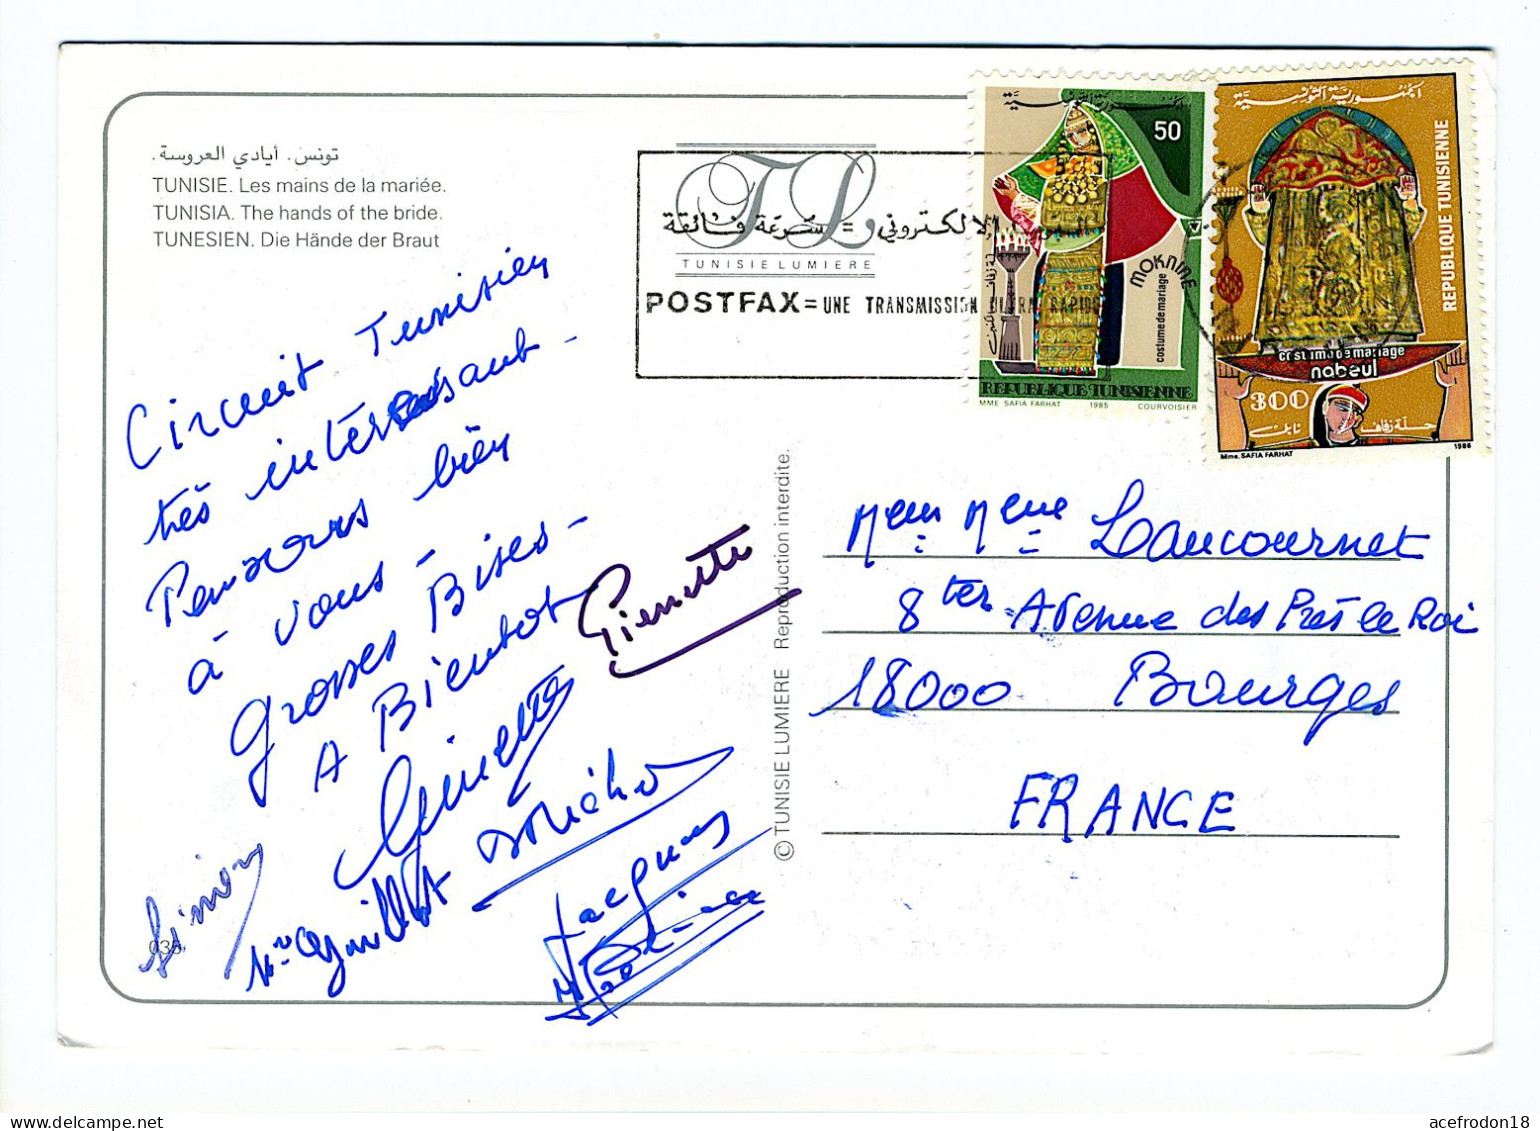 تونس. أيادي العروسة.
TUNISIE. Les mains de la mariée.
TUNISIA. The hands of the bride.
TUNESIEN. Die Hände der Braut
TL
TUNISIE LUMIERE
الالكتروني = سرعة فائقة
POSTFAX = UNE TRANSMISSION ULTRA RAPIDE
الجمهورية التونسية
50
MOKNINE
costume de mariage
REPUBLIQUE TUNISIENNE
MME SAFIA FARHAT 1985 COURVOISIER
الجمهورية التونسية
REPUBLIQUE TUNISIENNE
costume de mariage
nabeul
300
حلة زفاف نابل
Mme. SAFIA FARHAT 1986
Circuit Tunisien
très intéressant -
Pensons bien
à vous -
Grosses Bises -
A Bientot
Pierrette
Ginette
Simon
Guillot
Jacques
035
© TUNISIE LUMIERE Reproduction interdite.
Meur Mme Laucournet
8 ter Avenue des Prés le Roi
18000 Bourges
FRANCE
acefrodon18